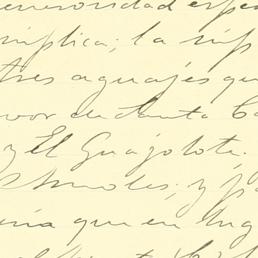 generosidad espe
implica; la sup
tres aguajes qu
vor de Santa Ca
y El Guajolote.
Amoles; y pa
ría que en lug